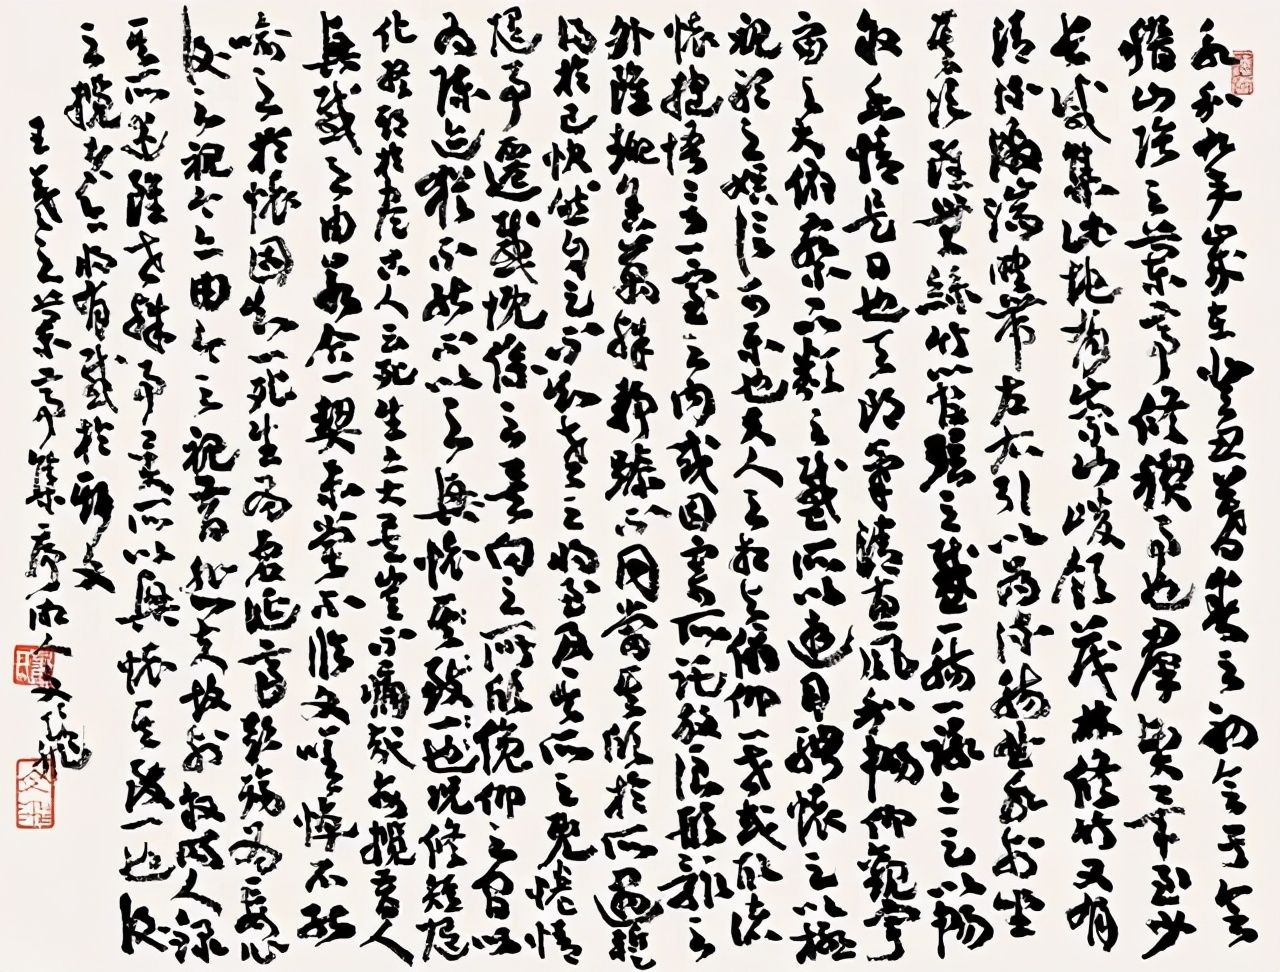 永和九年歲在癸丑暮春之初會于會
稽山陰之蘭亭修禊事也羣賢畢至少
長咸集此地有崇山峻領茂林修竹又有
清流激湍映帶左右引以為流觴曲水列坐
其次雖無絲竹管弦之盛一觴一詠亦足以暢
敘幽情是日也天朗氣清惠風和暢仰觀宇
宙之大俯察品類之盛所以遊目騁懷足以極
視聽之娛信可樂也夫人之相與俯仰一世或取諸
懷抱悟言一室之內或因寄所託放浪形骸之
外雖趣舍萬殊靜躁不同當其欣於所遇暫
得於己快然自足不知老之將至及其所之既惓情
隨事遷感慨係之矣向之所欣俛仰之間以
為陳迹猶不能不以之興懷其致一也況修短隨
化終期於盡古人云死生亦大矣豈不痛哉每攬昔人
興感之由若合一契未嘗不臨文嗟悼不能
喻之於懷固知一死生為虛誕齊彭殤為妄作
後之視今亦由今之視昔悲夫故列敘時人錄
其所述雖世殊事異所以興懷其致一也後
之攬者亦將有感於斯文
王羲之蘭亭集序湘人文飛